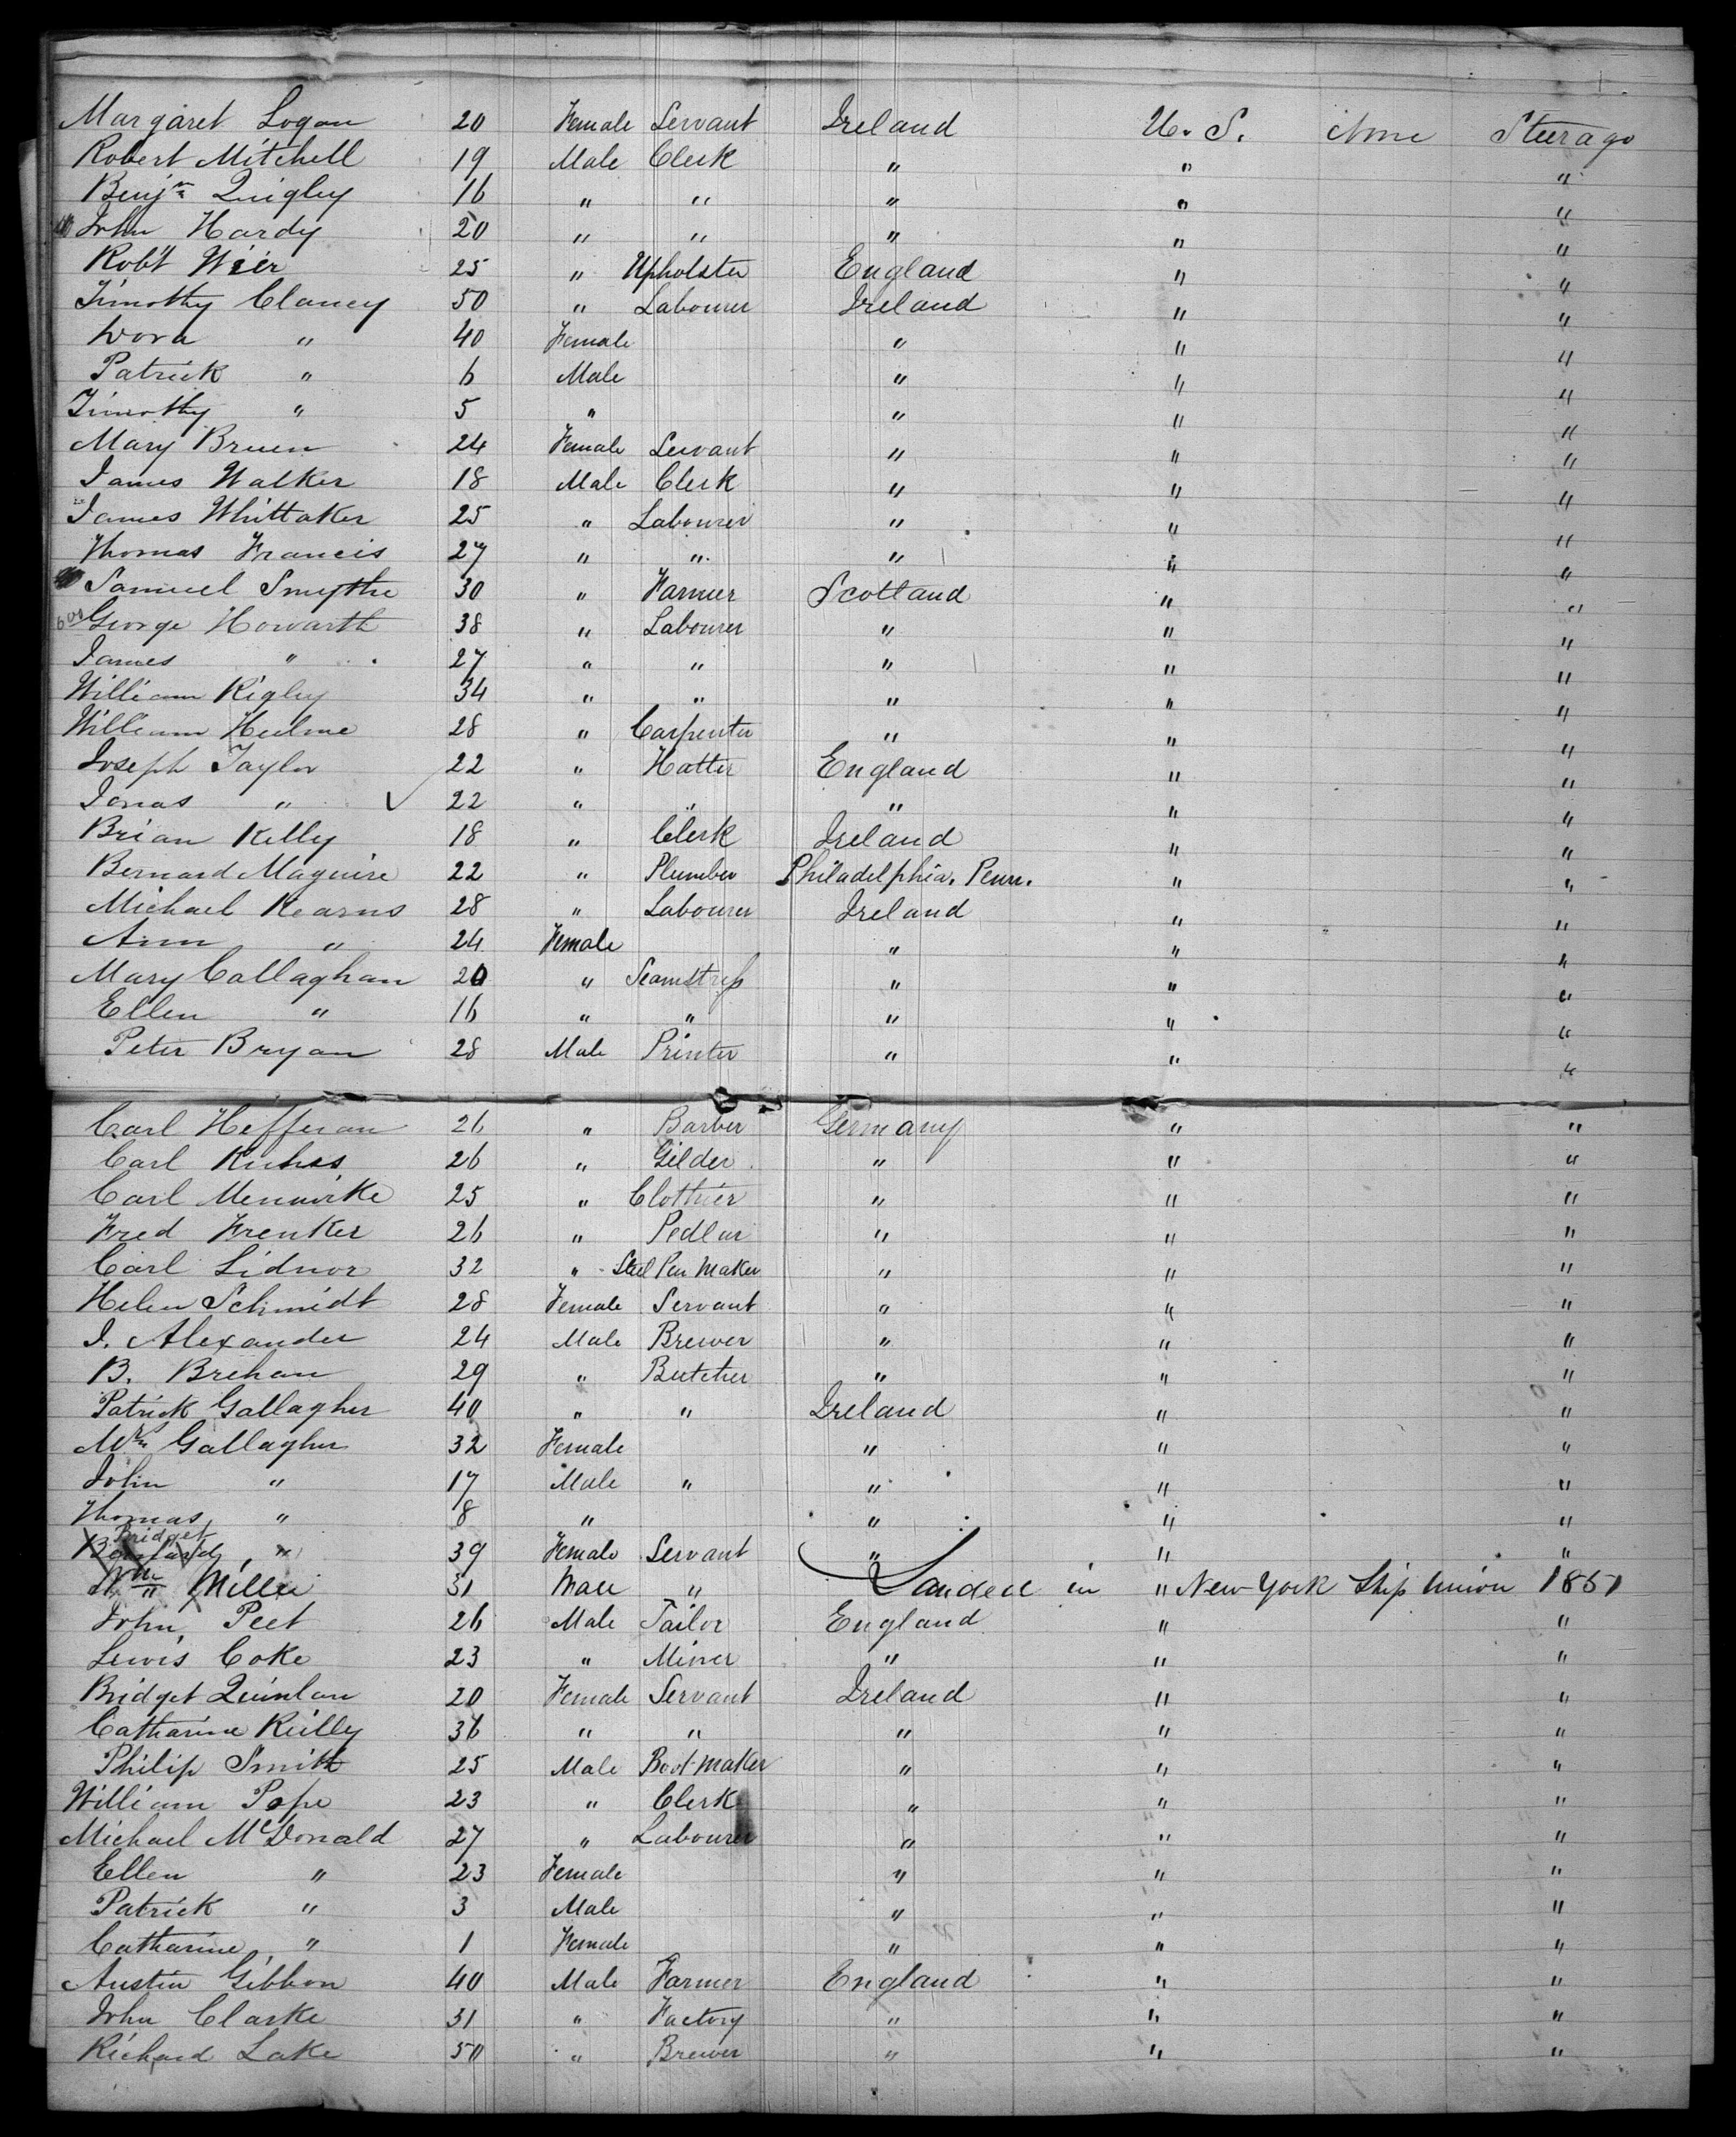 Margaret Logan 20 Female Servant Ireland U. S. None Steerage
Robert Mitchell 19 Male Clerk " " "
Benjn Quigley 16 " " " " "
John Hardy 20 " " " " "
Robt Weir 25 " Upholster England " "
Timothy Clancy 50 " Labourer Ireland " "
Dora " 40 Female " " "
Patrick " 6 Male " " "
Timothy " 5 " " " "
Mary Bruen 24 Female Servant " " "
James Walker 18 Male Clerk " " "
James Whittaker 25 " Labourer " " "
Thomas Francis 27 " " " " "
Samuel Smythe 30 " Farmer Scotland " "
600 George Howarth 38 " Labourer " " "
James " 27 " " " " "
William Rigley 34 " " " " "
William Hulme 28 " Carpenter " " "
Joseph Taylor 22 " Hatter England " "
Jonas " ✓ 22 " " " " "
Brian Kelly 18 " Clerk Ireland " "
Bernard Maguire 22 " Plumber Philadelphia. Penn. " "
Michael Kearns 28 " Labourer Ireland " "
Ann " 24 Female " " "
Mary Callaghan 20 " Seamstress " " "
Ellen " 16 " " " " "
Peter Bryan 28 Male Printer " " "
Carl Heffernan 26 " Barber Germany " "
Carl 26 " Gilder " " "
Carl 25 " Clothier " " "
Fred Frenker 26 " Pedlar " " "
Carl Lidnor 32 " Steel Pen Maker " " "
Helen Schmidt 28 Female Servant " " "
J. Alexander 24 Male Brewer " " "
B. Brehan 29 " Butcher " " "
Patrick Gallagher 40 " " Ireland " "
Gallagher 32 Female " " "
John " 17 Male " " " "
Thomas " 8 " " " "
Bridget
" 39 Female Servant " " "
Wm Miller 31 Male " Landed in " New York Ship Union 1851
John Peet 26 Male Tailor England " "
Lewis Coke 23 " Miner " " "
Bridget Quinlan 20 Female Servant Ireland " "
Catharine Reilly 36 " " " " "
Philip Smith 25 Male Boot-maker " " "
William Pope 23 " Clerk " " "
Michael McDonald 27 " Labourer " " "
Ellen " 23 Female " " "
Patrick " 3 Male " " "
Catharine " 1 Female " " "
Austin Gibbon 40 Male Farmer England " "
John Clarke 31 " Factory " " "
Richard Lake 50 " Brewer " " "